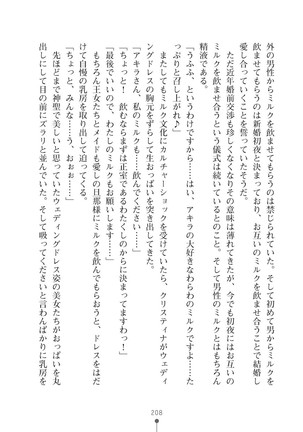 外の男性からミルクを飲ませてもらうのは禁じられていた。そして初めて男からミルクを
飲ませてもらうのは新婚初夜と決まっており、お互いのミルクを飲ませ合うことで結婚し
愛し合っていくことを誓っていたそうだ。
ただ近年婚前交渉も珍しくなくなりその意味は薄れてきたが、今でも初夜にはお互いの
ミルクを飲ませ合うという儀式は続いているとのこと。そして男性のミルクとはもちろん
精液である。
「うふふ、というわけですから……はい、アキラの大好きなわらわのミルクですよ。たっ
ぷりと召し上がれ♪」
またしてもミルク文化にカルチャーショックを受けていたら、クリスティナがウェディ
ングドレスの胸元をずらして生おっぱいを突き出してきた。
「アキラさん、私のミルクも……飲んでください……」
「ちょっと! 飲むならまずは正室であるわたくしのからに決まってますわ!」
「最後でいいので、わたしのミルクもお願いします……」
もちろん王女たちとメイドも愛しの旦那様にミルクを飲んでもらおうと、ドレスをはだ
けて自慢の乳房を取り出して迫ってくる。
「ちょっと、みんな……うっ、おぉぉ……」
先ほどまで神聖で美しいと思っていたウェディングドレス姿の美女たちがおっぱいを丸
出しにして目の前にズラリと並んでいた。そして吸ってくださいと言わんばかりに乳房を
208